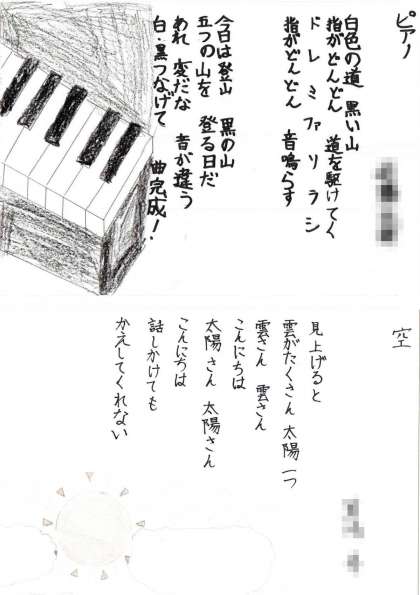 ピアノ
白色の道 黒い山
指がどんどん 道を駆けてく
ドレミファソラシ
指がどんどん 音鳴らす
今日は登山 黒の山
五つの山を 登る日だ
あれ 変だな 音が違う
白・黒つなげて 曲完成!
空
見上げると
雲がたくさん 太陽一つ
雲さん 雲さん
こんにちは
太陽さん 太陽さん
こんにちは
話しかけても
かえしてくれない